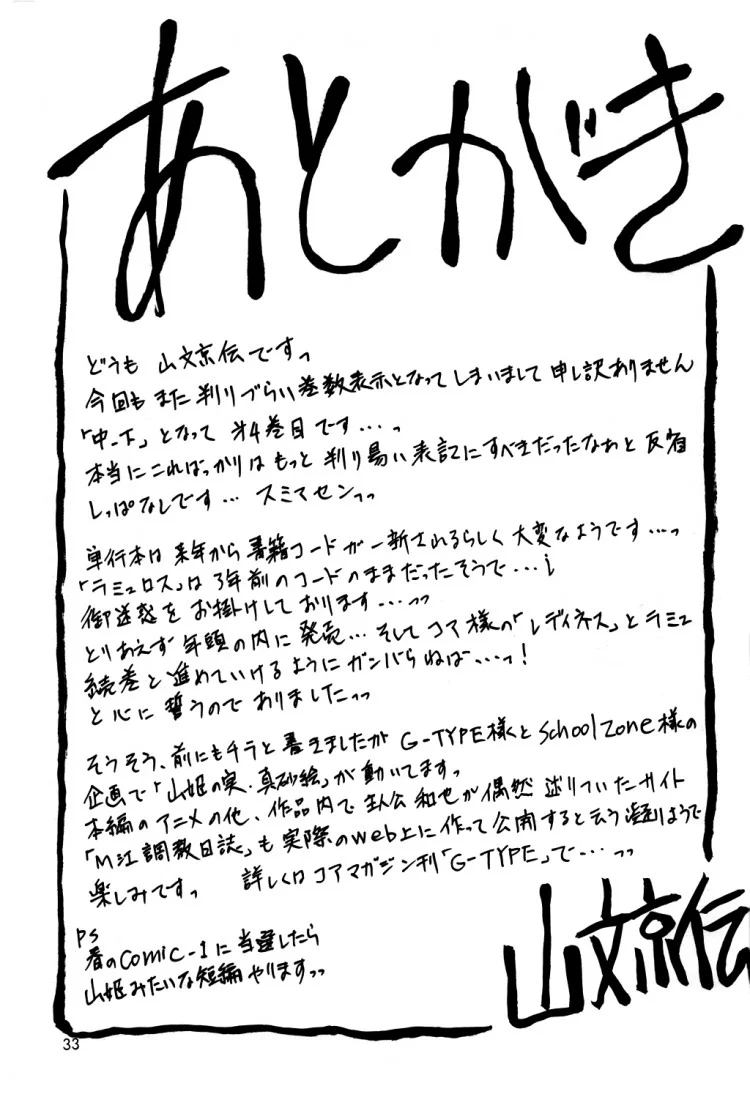 あとがき
どうも 山文京伝ですっ
今回もまた判りづらい巻数表示となってしまいまして申し訳ありません
「中-下」となって 第4巻目です…っ
本当にこればっかりはもっと判り易い表記にすべきだったなあと反省
しっぱなしです… スミマセンっっ
単行本は来年から書籍コードが一新されるらしく大変なようです…っ
「ラミュロス」は3年前のコードのままだったそうで…
御迷惑をお掛けしております…っっ
とりあえず年頭の内に発売… そしてコア様の「レディネス」とラミュ
続巻と進めていけるようにガンバらねば…っ!
と心に誓うのでありましたっっ
そうそう、前にもチラと書きましたが G-TYPE様くと SchoolZone様の
企画で「山姫の実・真砂絵」が動いてますっ
本編のアニメの他、作品内で主人公和也が偶然辿りついたサイト
「M江調教日誌」も実際のweb上に作って公開すると云う凝りようで
楽しみですっ 詳しくはコアマガジン刊「G-TYPE」で…っっ
PS
春のComic-1に当選したら
山姫みたいな短編やりますっっ
山文京伝
33